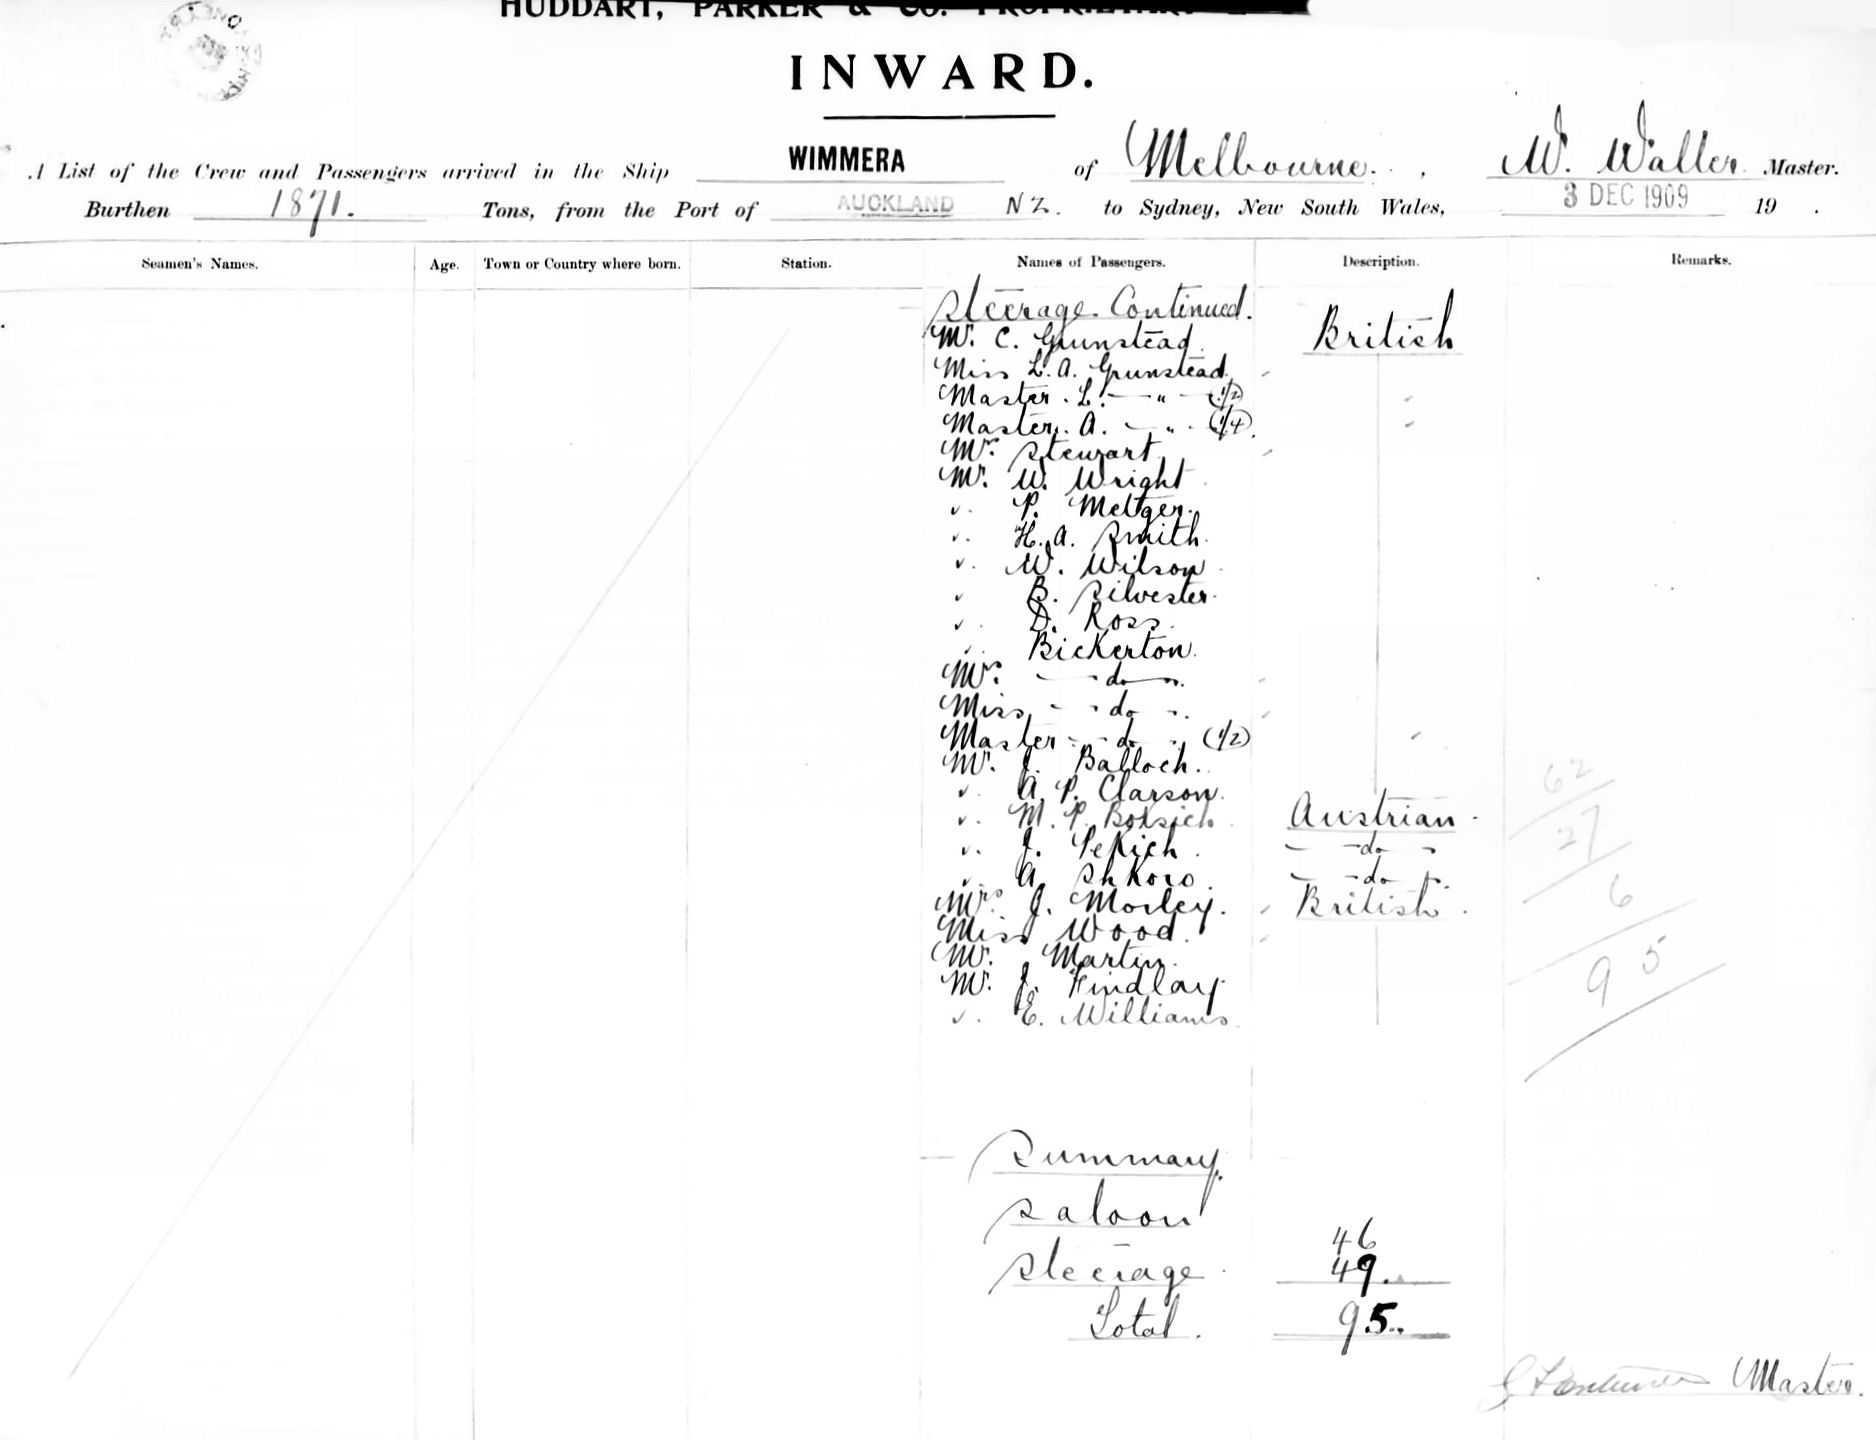 HUDDART, PARKER & CO. PROPRIETARY
INWARD.
A List of the Crew and Passengers arrived in the Ship WIMMERA of Melbourne, W. Waller Master.
Burthen 1871. Tons, from the Port of AUCKLAND NZ. to Sydney, New South Wales, 3 DEC 1909 19 .
Seamen's Names. Age. Town or Country where born. Station. Names of Passengers. Description. Remarks.
Steerage Continued.
Mr. C. Grunstead British
Miss L. A. Grunstead
Master . L. — " — (1/2)
Master. A. — " — (1/4)
Mrs. Stewart
Mr. W. Wright
". P. Metzger.
". H. A. Smith.
". W. Wilson
" B. Silvester.
". D. Ross.
". Bickerton.
Mrs. — do —
Miss — do —
Master — do — (1/2)
Mr. J. Balloch.
". A. P. Clarson.
". M. P. Austrian.
". J. Pekich. — do —
". A. — do —
Mrs. J. Morley. British.
Miss Wood.
Mr. Martin.
Mr. J. Findlay
". E. Williams.
62
27
6
95
Summary.
Saloon 46
Steerage 49.
Total. 95.
Master.